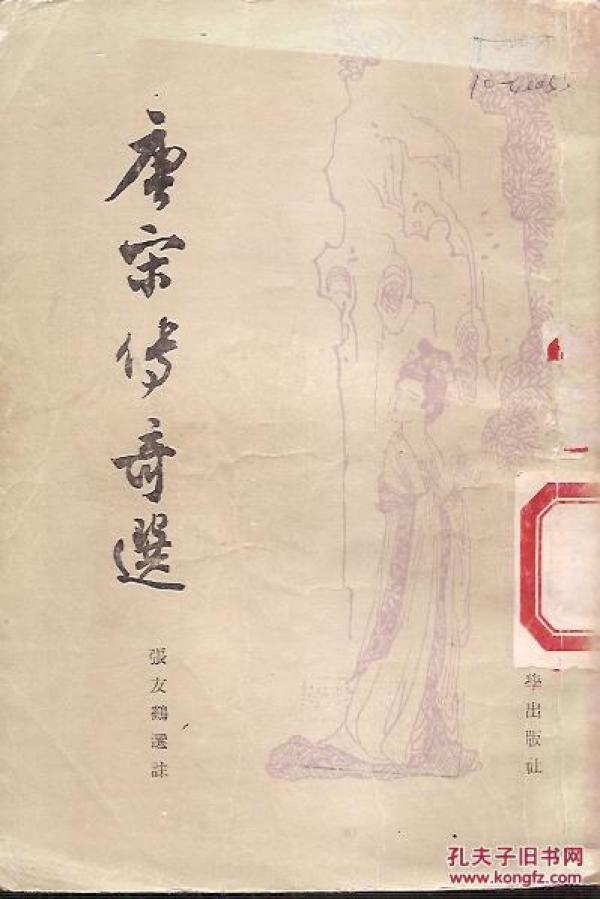 唐宋傳奇選
張友鶴選註
學出版社
孔夫子旧书网
www.kongfz.com